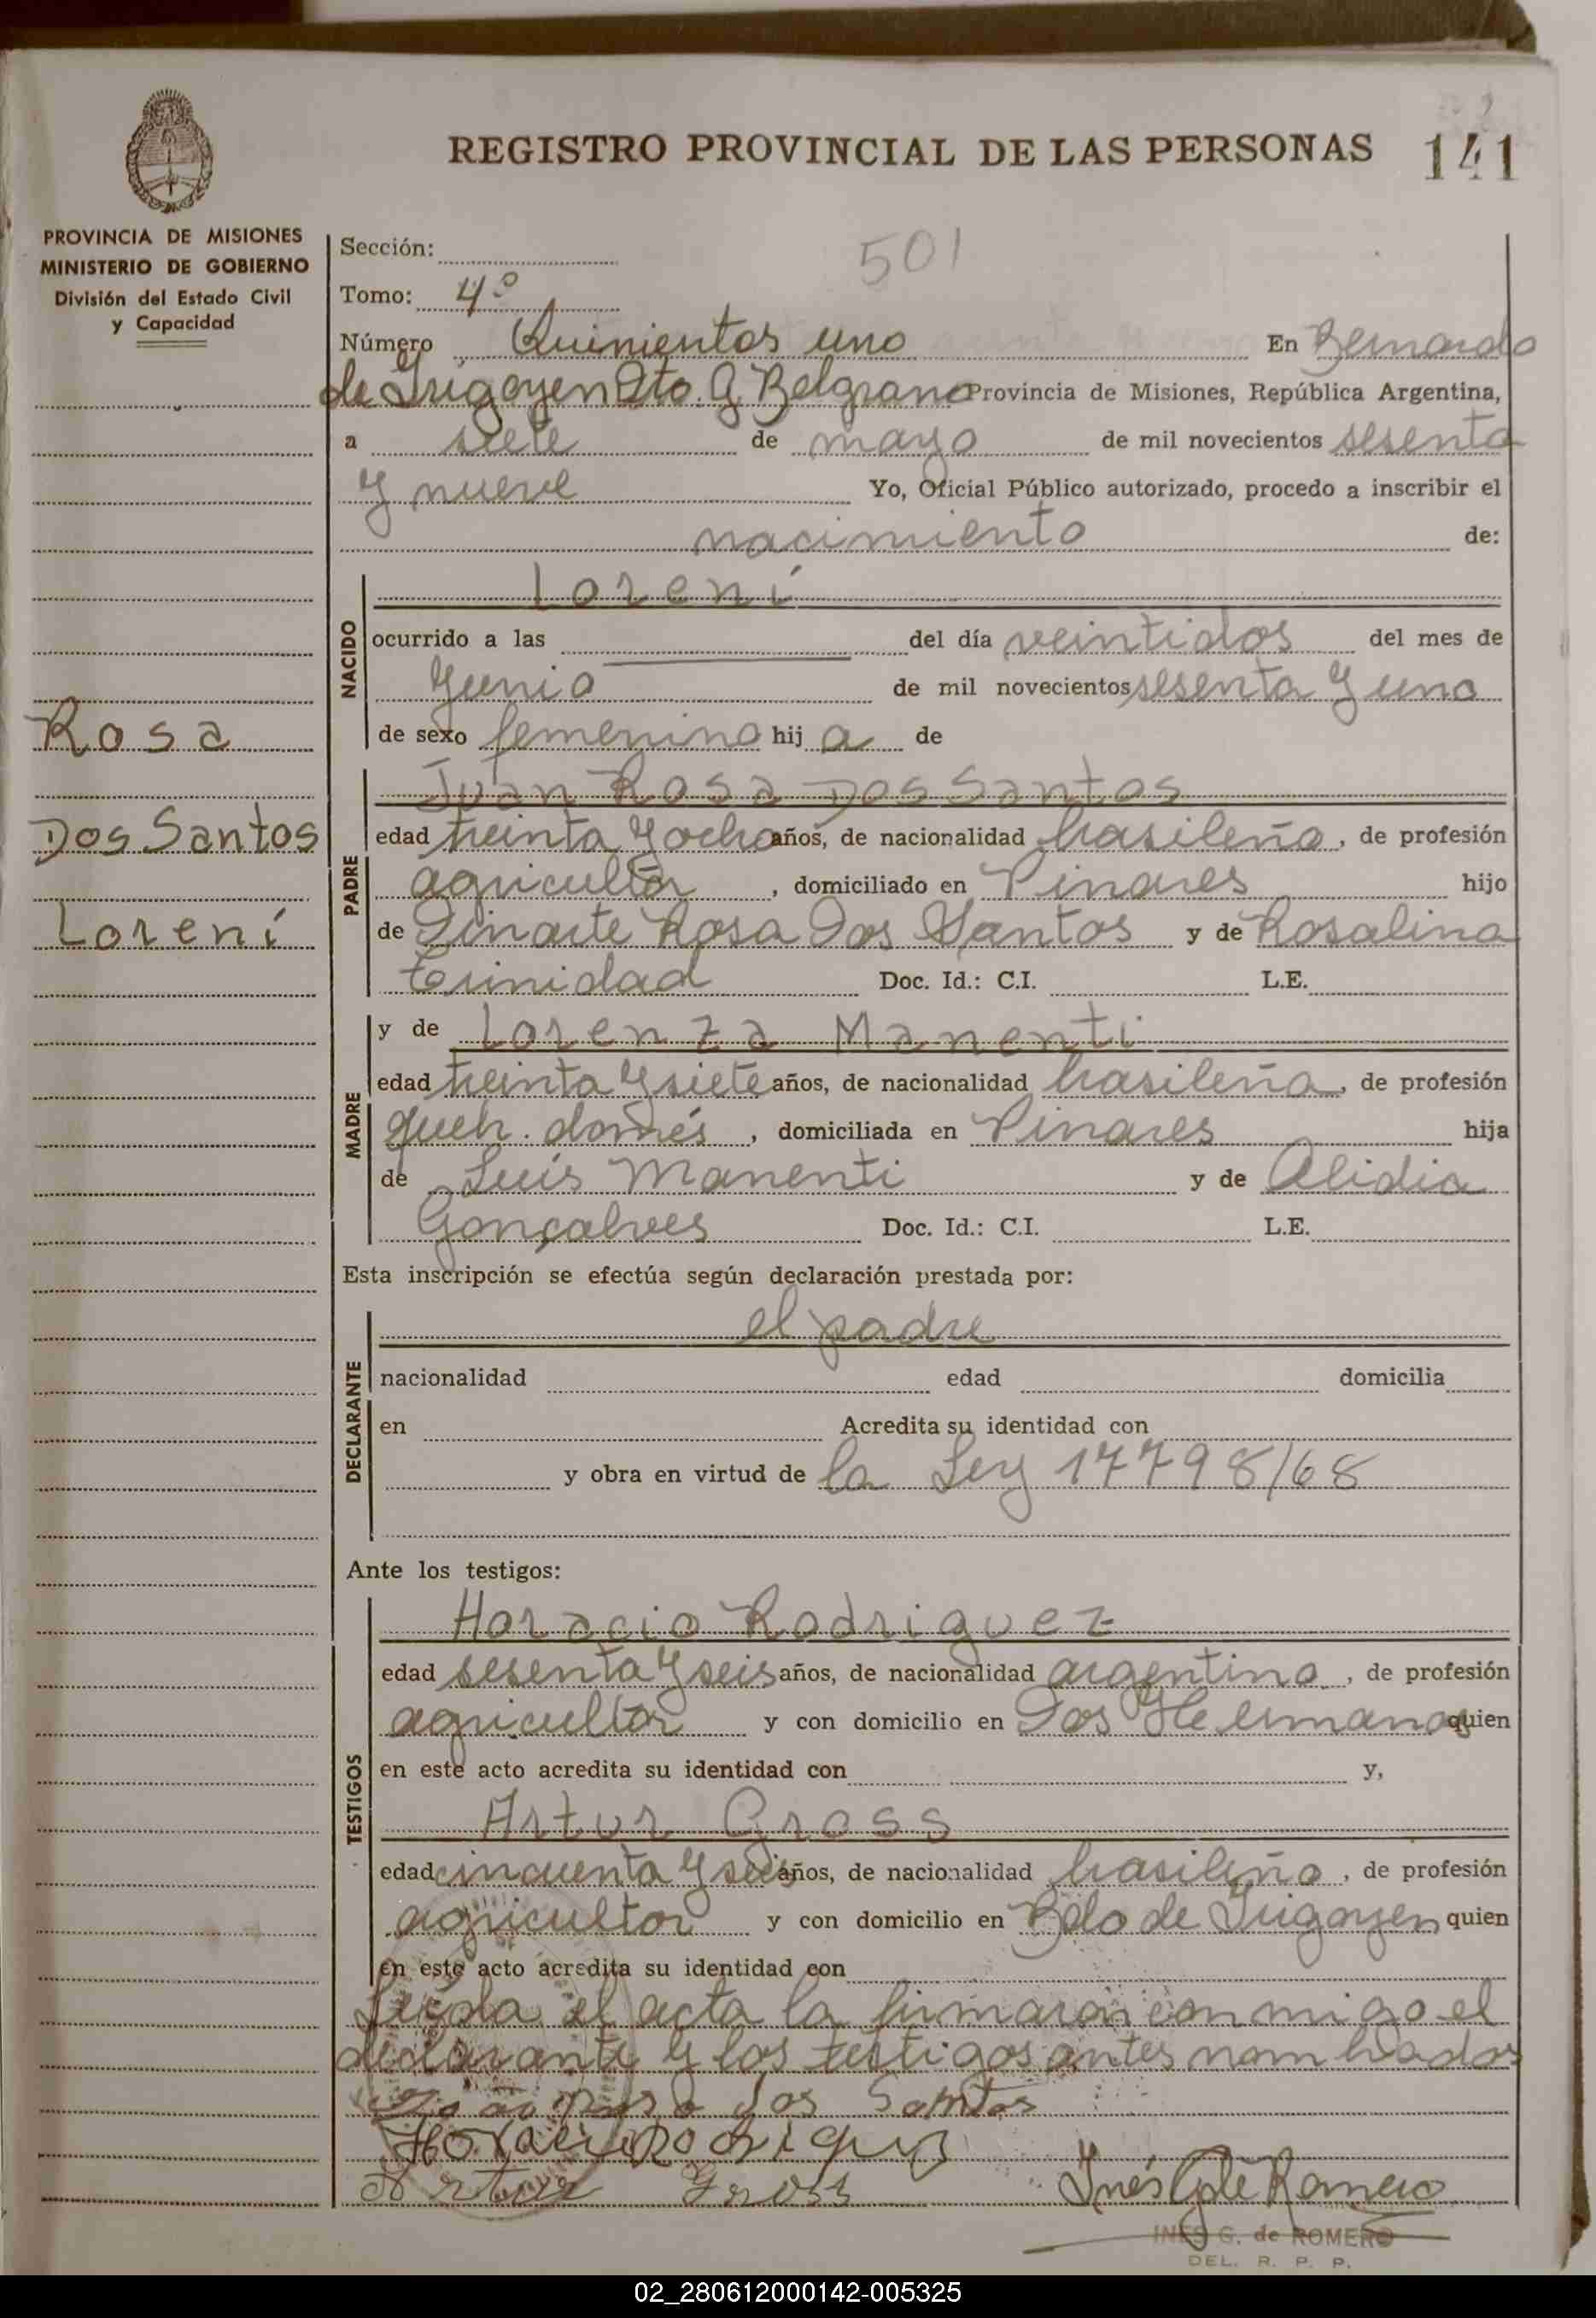 REGISTRO PROVINCIAL DE LAS PERSONAS 141
PROVINCIA DE MISIONES
MINISTERIO DE GOBIERNO
División del Estado Civil
y Capacidad
Rosa
Dos Santos
Lorení
Sección:
501
Tomo: 4º
Número Quinientos uno En Bernardo
de Irigoyen Dto. G Belgrano Provincia de Misiones, República Argentina,
a siete de mayo de mil novecientos sesenta
y nueve Yo, Oficial Público autorizado, procedo a inscribir el
nacimiento de:
NACIDO
Lorení
ocurrido a las del día veintidos del mes de
Junio de mil novecientos sesenta y uno
de sexo femenino hij a de
PADRE
Juan Rosa Dos Santos
edad treinta y ocho años, de nacionalidad brasileña, de profesión
agricultor, domiciliado en Pinares hijo
de Dinarte Rosa Dos Santos y de Rosalina
Trinidad Doc. Id.: C.I. L.E.
MADRE
y de Lorenza Manenti
edad treinta y siete años, de nacionalidad brasileña, de profesión
queh. domés, domiciliada en Pinares hija
de Luis Manenti y de Alidia
Gonçalves Doc. Id.: C.I. L.E.
Esta inscripción se efectúa según declaración prestada por:
DECLARANTE
el padre
nacionalidad edad domicilia
en Acredita su identidad con
y obra en virtud de la Ley 17798/68
Ante los testigos:
TESTIGOS
Horacio Rodriguez
edad sesenta y seis años, de nacionalidad argentino, de profesión
agricultor y con domicilio en Dos Hermanas quien
en este acto acredita su identidad con y,
Artur Gross
edad cincuenta y seis años, de nacionalidad brasileño, de profesión
agricultor y con domicilio en Bdo de Irigoyen quien
en este acto acredita su identidad con
Leída el acta la firmaron conmigo el
declarante y los testigos antes nombrados
dos Santos
Horacio Rodriguez
Artur Gross Inés G de Romero
INES G. de ROMERO
DEL. R. P. P.
02_280612000142-005325